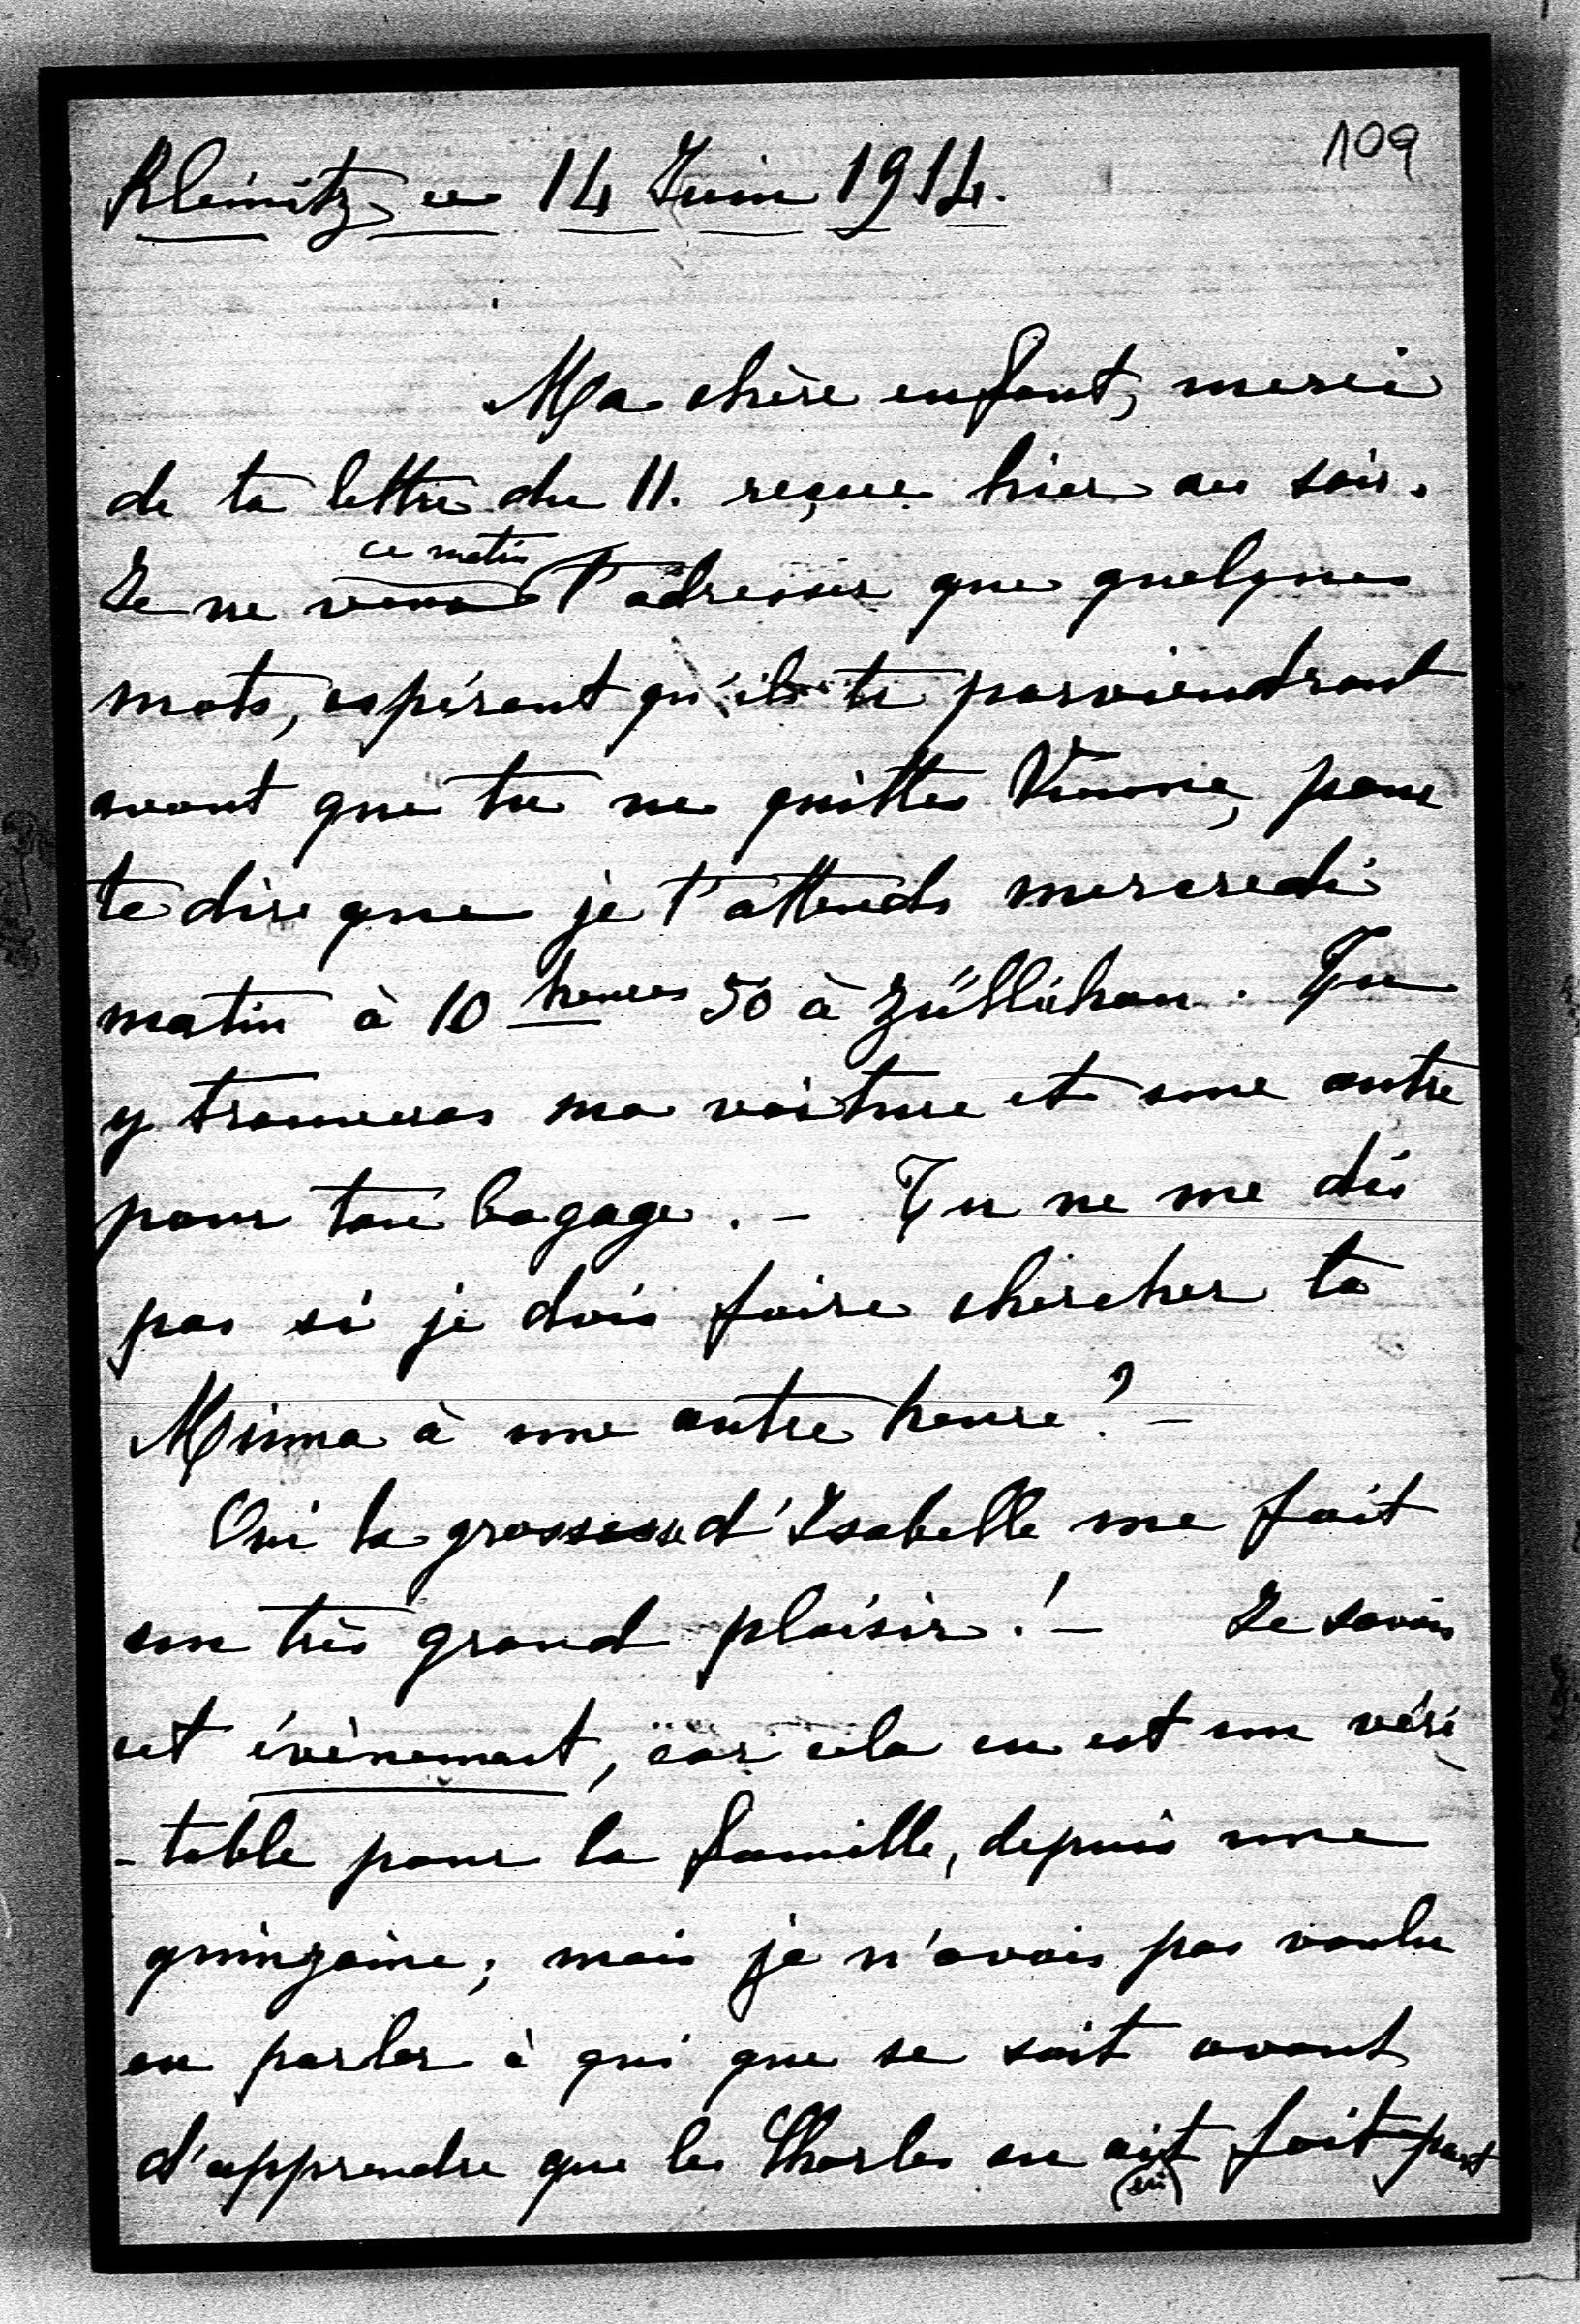 109
Kleinitz ce 14 Juin 1914.
Ma chère enfant, merci
de ta lettre du 11. reçue hier au soir.
ce matin
Je ne veux t'adresser que quelques
mots, espérant qu'ils te parviendront
avant que tu ne quittes Vienne, pour
te dire que je t'attends mercredi
matin à 10 heures 50 à Züllichau. Tu
y trouveras ma voiture et une autre
pour ton bagage. - Tu ne me dis
pas si je dois faire chercher ta
Minna à une autre heure? -
Oui la grossesse d'Isabelle me fait
un très grand plaisir! - Je savais
cet évènement, car cela en est un véri
-table pour la famille, depuis une
quinzaine; mais je n'avais pas voulu
en parler à qui que se soit avant
d'apprendre que les Charles en ait fait part